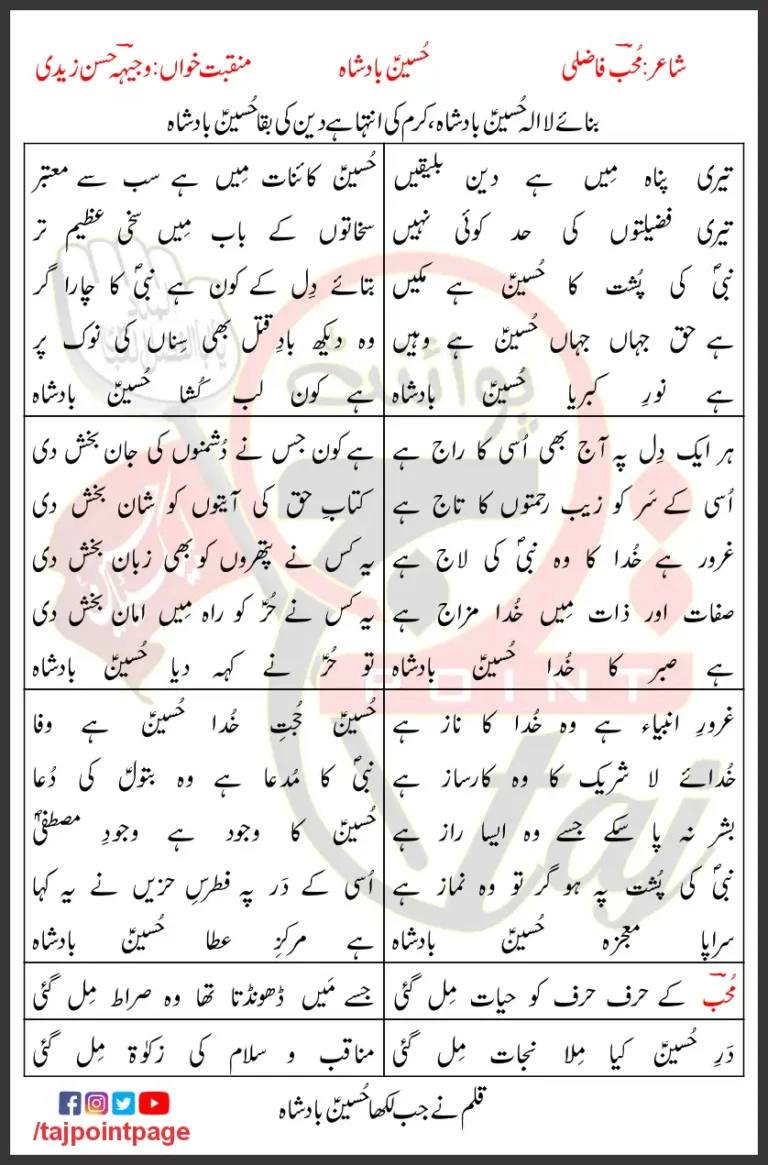 شاعر: مُحب فاضلی
حُسینؑ بادشاہ
منقبت خواں: وجیہہ حسن زیدی
بنائے لا الہ حُسینؑ بادشاہ، کرم کی انتہا ہے دین کی بقا حُسینؑ بادشاہ
تیری پناہ مِیں ہے دین بلیقیں
تیری فضیلتوں کی حد کوئی نہیں
نبیؐ کی پُشت کا حُسینؑ ہے مکیں
ہے حق جہاں جہاں حُسینؑ ہے وہیں
ہے نورِ کبریا حُسینؑ بادشاہ
حُسینؑ کائنات مِیں ہے سب سے معتبر
سخاتوں کے باب مِیں سخی عظیم تر
بتائے دِل کے کون ہے نبیؐ کا چارا گر
وہ دیکھ بادِ قتل بھی سِناں کی نوک پر
ہے کون لب کُشا حُسینؑ بادشاہ
ہر ایک دِل پہ آج بھی اُسی کا راج ہے
اُسی کے سَر کو زیب رحمتوں کا تاج ہے
غرور ہے خُدا کا وہ نبیؐ کی لاج ہے
صفات اور ذات مِیں خُدا مزاج ہے
ہے صبر کا خُدا حُسینؑ بادشاہ
ہے کون جس نے دُشمنوں کی جان بخش دی
کتابِ حق کی آیتوں کو شان بخش دی
یہ کس نے پتھروں کو بھی زبان بخش دی
یہ کس نے حُرؑ کو راہ مِیں امان بخش دی
تو حُرؑ نے کہہ دیا حُسینؑ بادشاہ
غرورِ انبیاء ہے وہ خُدا کا ناز ہے
خُدائے لا شریک کا وہ کارساز ہے
بشر نہ پا سکے جسے وہ ایسا راز ہے
نبیؐ کی پُشت پہ ہو گر تو وہ نماز ہے
سراپا معجزہ حُسینؑ بادشاہ
حُسینؑ حُجتِ خُدا حُسینؑ ہے وفا
نبیؐ کا مُدعا ہے وہ بتولؑ کی دُعا
حُسینؑ کا وجود ہے وجودِ مصطفیؐ
اُسی کے دَر پہ فطرسِ حزیں نے یہ کہا
ہے مرکزِ عطا حُسینؑ بادشاہ
مُحب کے حرف حرف کو حیات مِل گئی
جسے مَیں ڈھونڈتا تھا وہ صراط مِل گئی
دَرِ حُسینؑ کیا مِلا نجات مِل گئی
مناقب و سلام کی زکوٰۃ مِل گئی
قلم نے جب لکھا حُسینؑ بادشاہ
/tajpointpage
پوائنٹ
تاج
POINT
taj